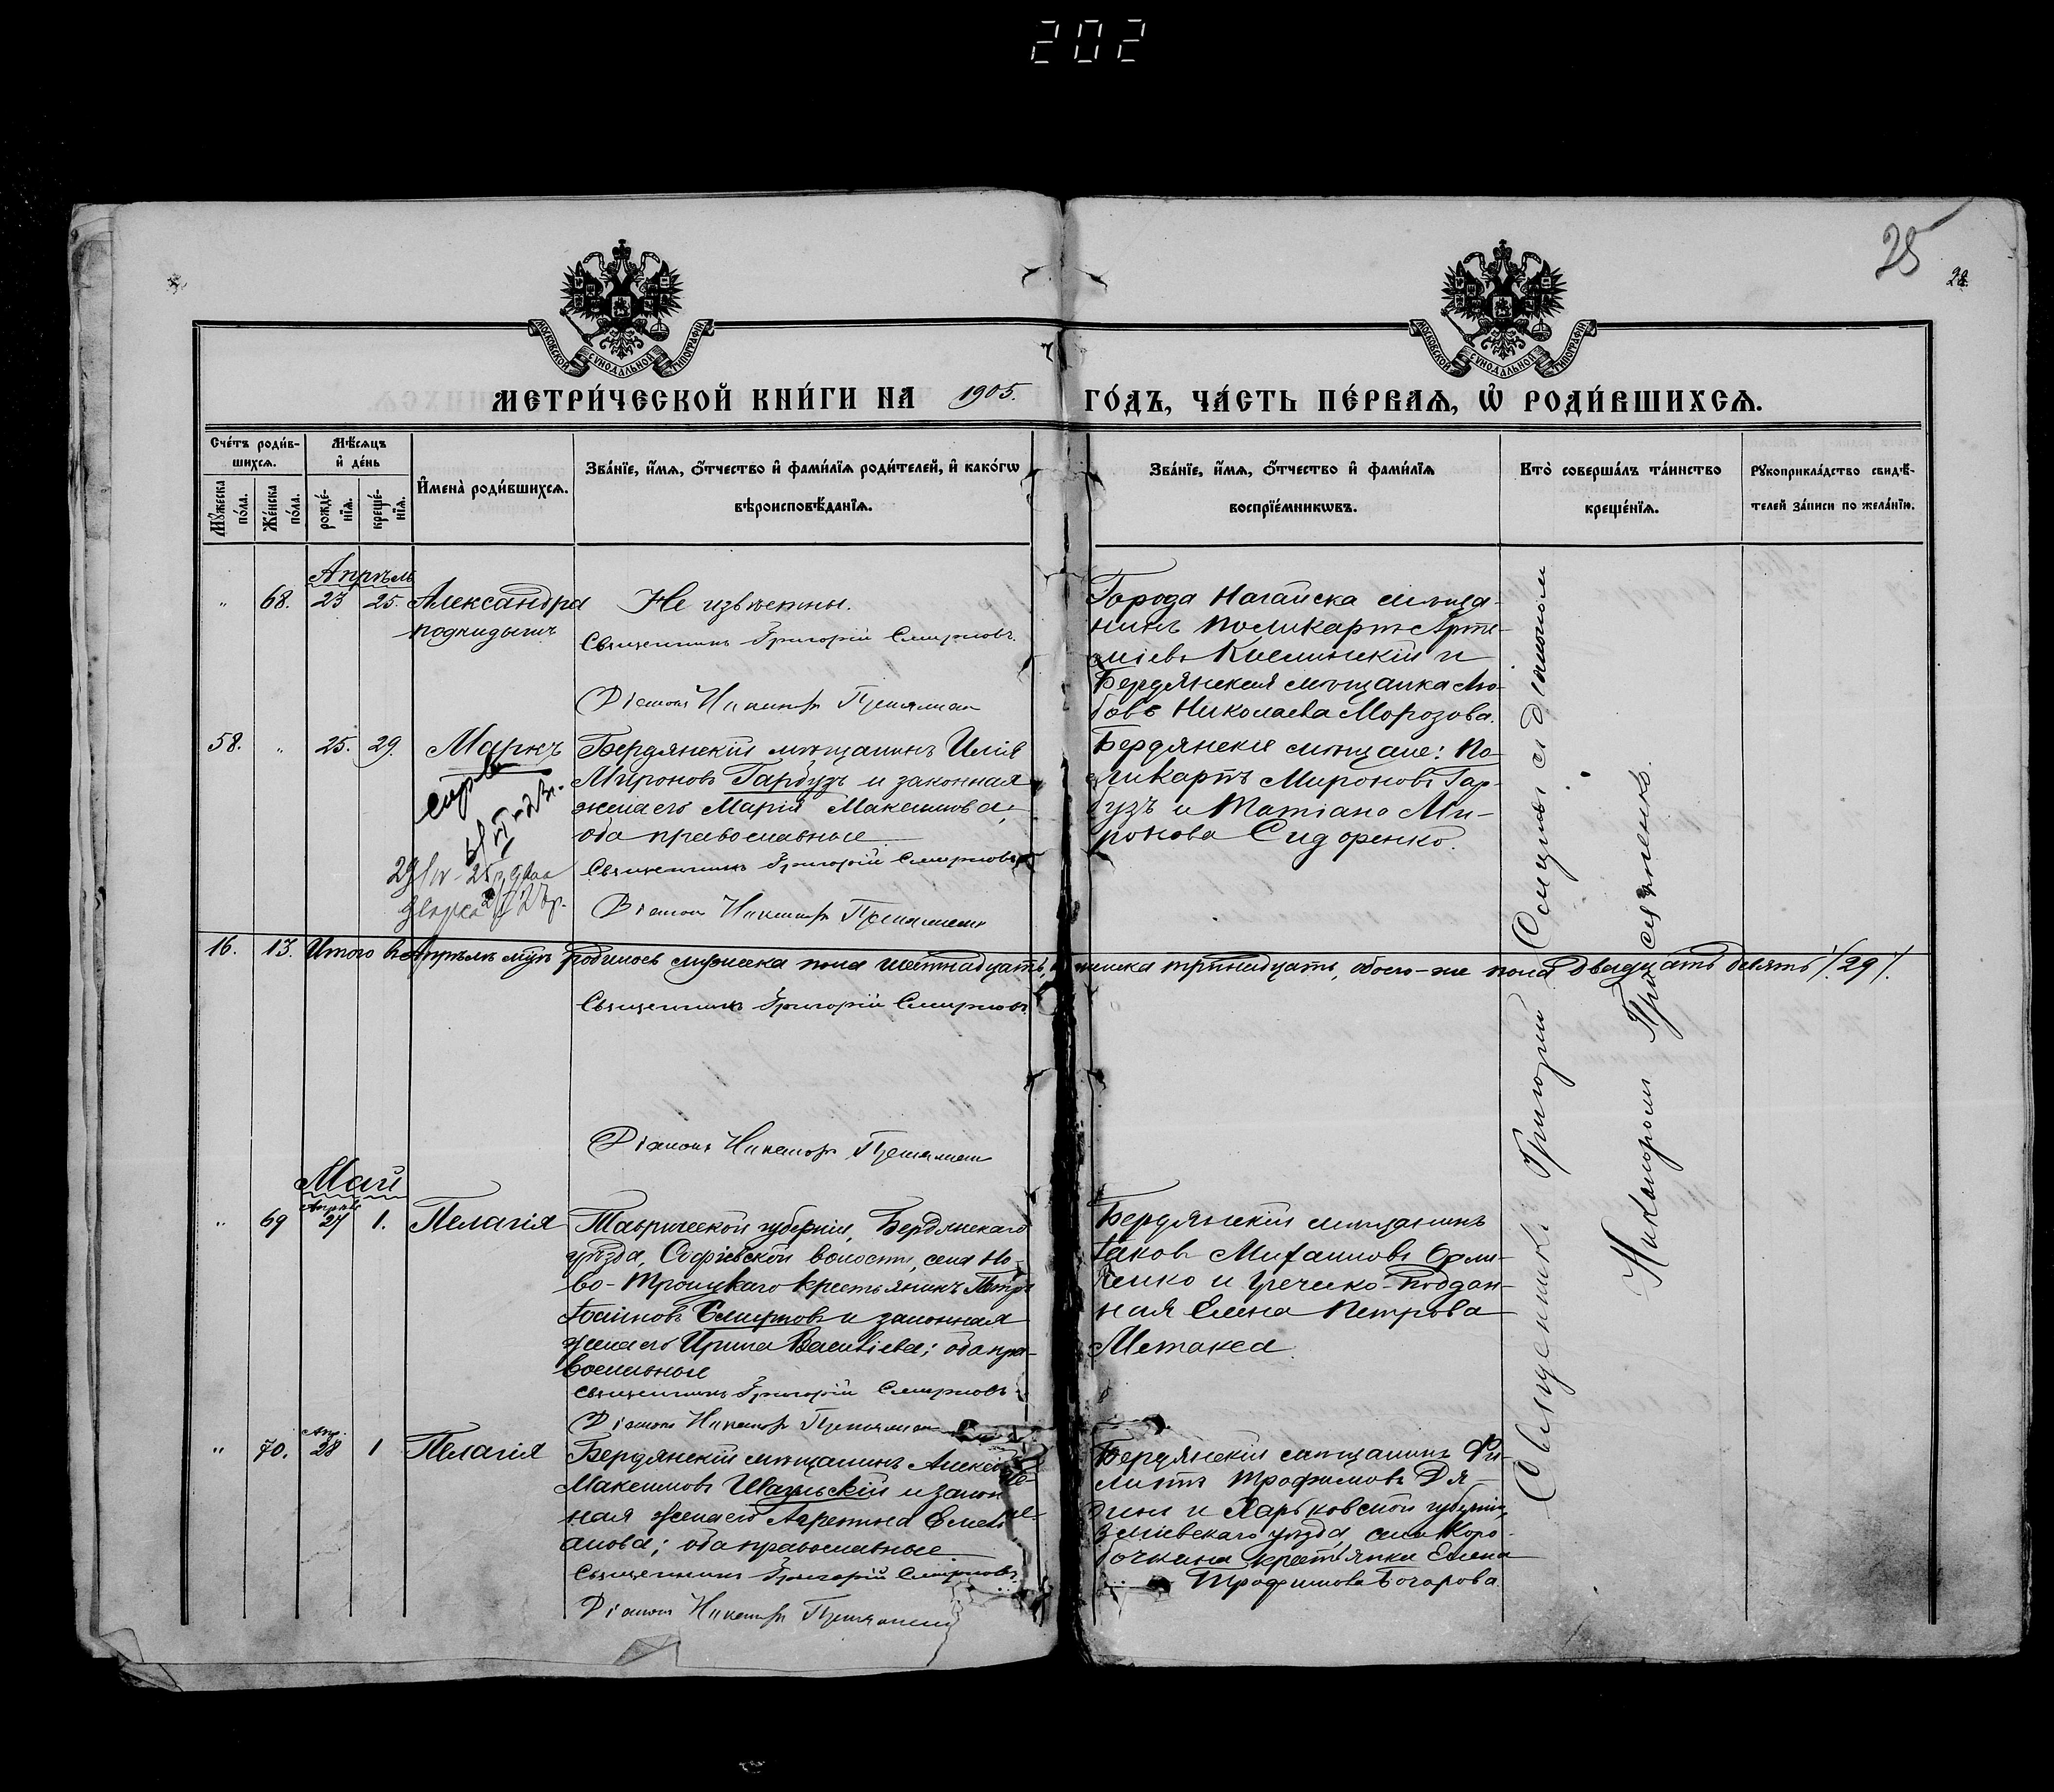 202
25
28.
МОСКОВСКОЙ СУНОДАЛЬНОЙ ТИПОГРАФІИ
МОСКОВСКОЙ СУНОДАЛЬНОЙ ТИПОГРАФІИ
МЕТРИ́ЧЕСКОЙ КНИ́ГИ НА 1905. ГО́ДЪ, ЧА́СТЬ ПЕ́РВАѦ, Ѡ҆ РОДИ́ВШИХСѦ.
Сче́тъ роди́в-
шихсѧ.
Мꙋ́жеска
по́ла.
Же́нска
по́ла.
Мѣ́сѧцъ
и҆ де́нь
рожде́-
нїѧ.
креще́-
нїѧ.
И҆мена̀ роди́вшихсѧ.
Зва́нїе, и҆́мѧ, ѻ҆́тчество и҆ фами́лїѧ роди́телей, и҆ како́гѡ
вѣроисповѣ́данїѧ.
Зва́нїе, и҆́мѧ, ѻ҆́тчество и҆ фами́лїѧ
воспрїе́мникѡвъ.
Кто̀ соверша́лъ та́инство
креще́нїѧ.
Рꙋкоприкла́дство свидѣ́-
телей за́писи по жела́нїю.
Апрѣль
" 68. 23 25. Александра
подкидышъ
Не извѣстны.
Священникъ Григорій Смирновъ.
Діаконъ Никаноръ
Города Ногайска мѣща-
нинъ Поликарпъ Арте-
міевъ и
Бердянская мѣщанка Лю-
бовь Николаева Морозова.
58. " 25. 29. Маркъ
Бердянскій мѣщанинъ Илія
Мироновъ Гарбузъ и законная
жена его Марія Максимова;
оба православные
Священникъ Григорій Смирновъ
Діаконъ Никаноръ
Бердянскіе мѣщане: По-
ликарпъ Мироновъ Гар-
бузъ и Татіана Ми-
ронова Сидоренко.
16. 13. Итого въ Апрѣлѣ м-цѣ родилось мужеска пола шестнадцать, женска тринадцать, обоего-же пола двадцать девять /29/.
Священникъ Григорій Смирновъ
Діаконъ Никаноръ
Май
" 69 Апрѣль 27 1. Пелагія
Таврической губерніи, Бердянскаго
уѣзда, Софіевской волости, села Но-
во-Троицкаго крестьянинъ Петръ
Смирновъ и законная
жена его Ирина Василіева; оба пра-
вославные
Священникъ Григорій Смирновъ
Діаконъ Никаноръ
Бердянскій мѣщанинъ
Іаковъ Михаиловъ
и Греческо-поддан-
ная Елена Петрова
Метакса.
" 70. Апр. 28 1 Пелагія
Бердянскій мѣщанинъ Алексѣй
Максимовъ и закон-
ная жена его Агрепина Емель-
анова; оба православные.
Священникъ Григорій Смирновъ
Діаконъ Никаноръ
Бердянскій мѣщанинъ Фи-
липпъ Трофимовъ Дя-
и Харьковской губерніи,
Зміевскаго уѣзда, села Коро-
бочкина крестьянка Елена
Трофимова Бочарова.
Священникъ Григорій Смирновъ съ діакономъ
Никаноромъ